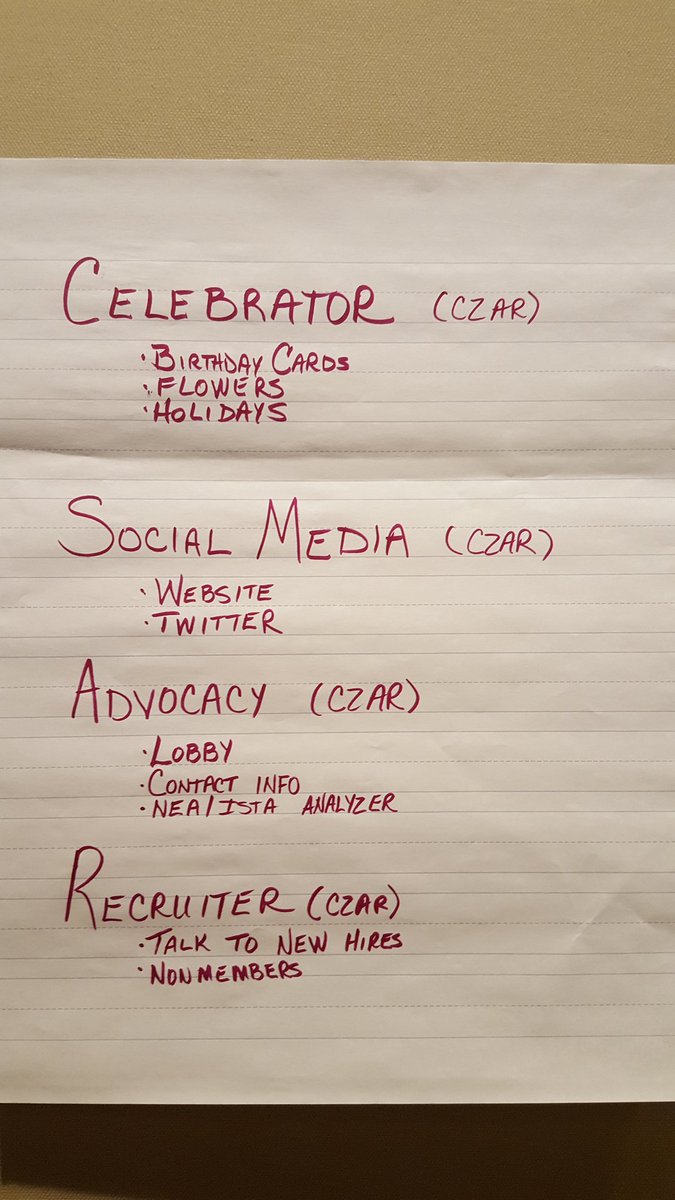 CELEBRATOR (CZAR)
· BIRTHDAY CARDS
· FLOWERS
· HOLIDAYS
SOCIAL MEDIA (CZAR)
· WEBSITE
· TWITTER
ADVOCACY (CZAR)
· LOBBY
· CONTACT INFO
· NEA/ISTA ANALYZER
RECRUITER (CZAR)
· TALK TO NEW HIRES
· NONMEMBERS